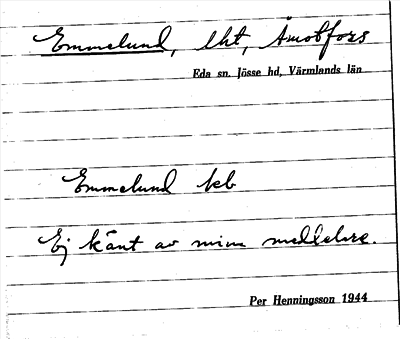 Emmelund, lht, Åmotfors
Eda sn. Jösse hd, Värmlands län
Emmelund
Ej känt av mina meddelare.
Per Henningsson 1944